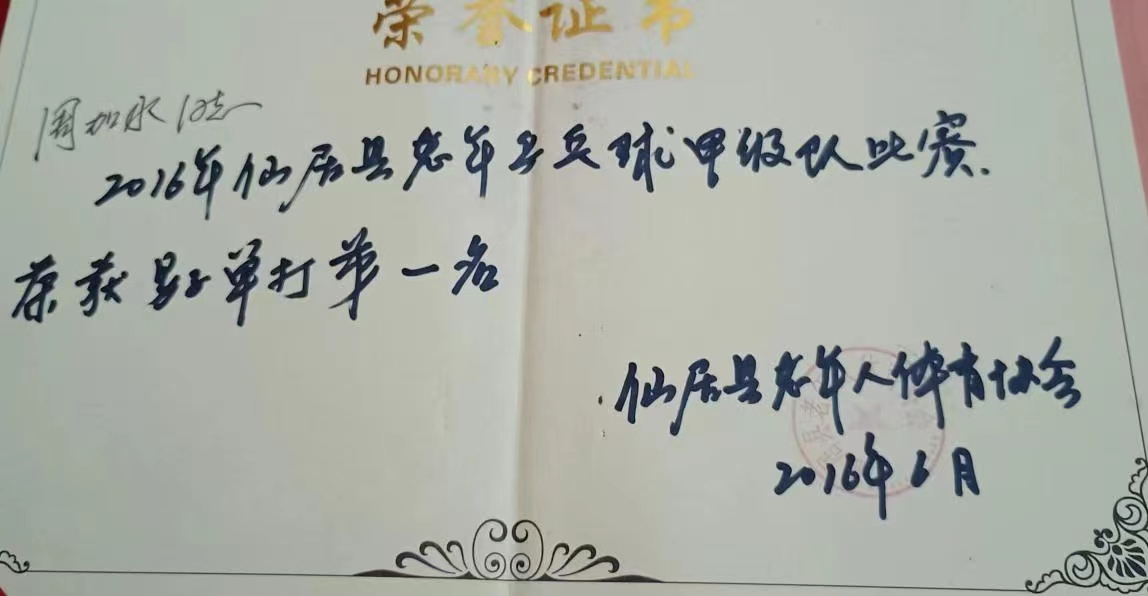 荣誉证书
HONORARY CREDENTIAL
周加永同志
2016年仙居县老年乒乓球甲级队比赛.
荣获男子单打第一名
仙居县老年人体育协会
2016年6月